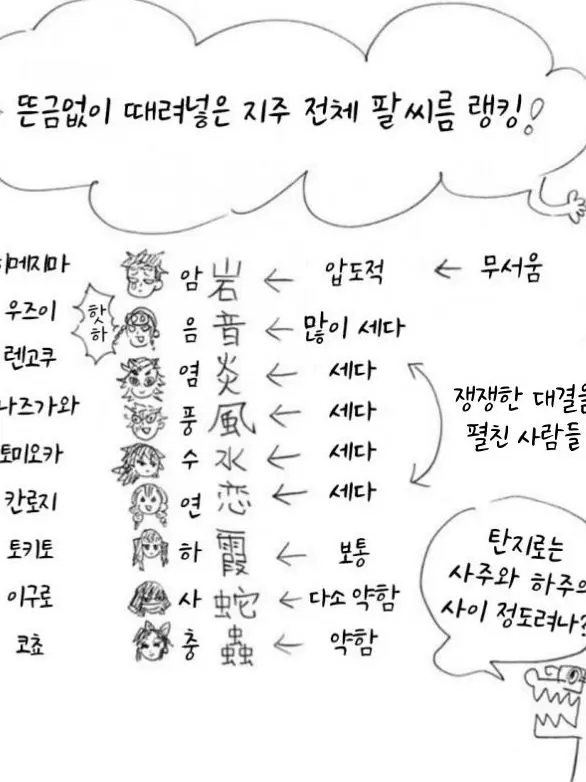 뜬금없이 때려넣은 지주 전체 팔씨름 랭킹!
히메지마 암 岩 ← 압도적 ← 무서움
우즈이 핫하 음 音 ← 많이 세다
렌고쿠 염 炎 ← 세다
나즈가와 풍 風 ← 세다
토미오카 수 水 ← 세다
칸로지 연 恋 ← 세다
토키토 하 霞 ← 보통
이구로 사 蛇 ← 다소 약함
코쵸 충 蟲 ← 약함
쟁쟁한 대결을
펼친 사람들
탄지로는
사주와 하주의
사이 정도려나?